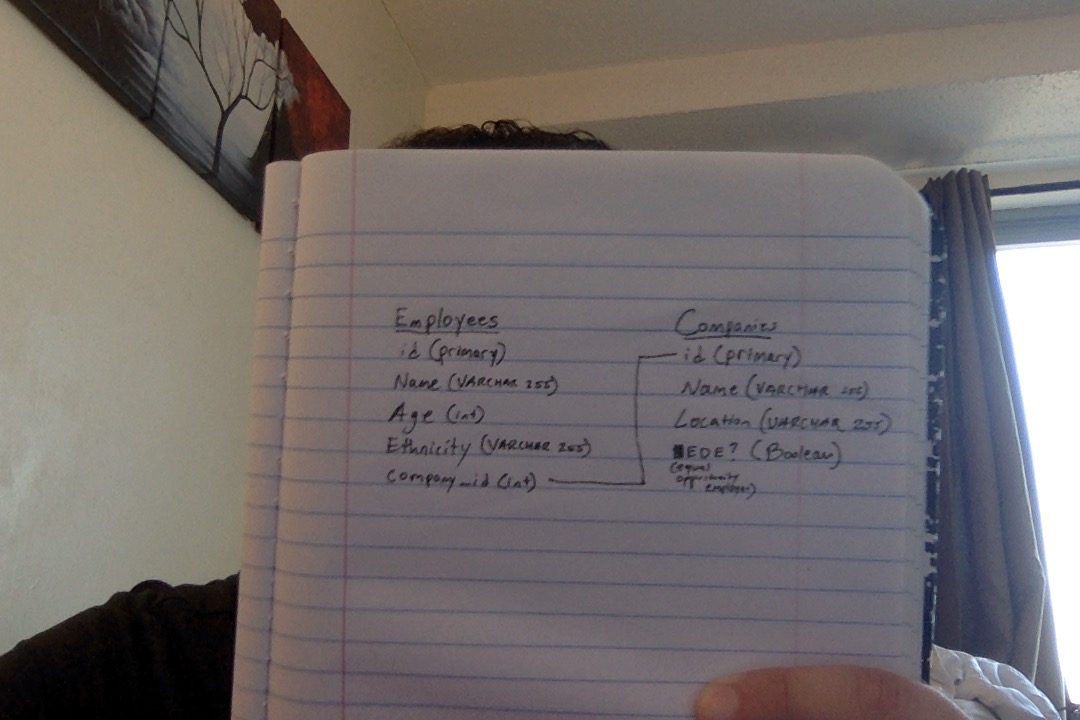 Employees
id (primary)
Name (VARCHAR 255)
Age (int)
Ethnicity (VARCHAR 255)
company_id (int)
Companies
id (primary)
Name (VARCHAR 255)
Location (VARCHAR 255)
EOE? (Boolean)
(equal
opportunity
Employer)